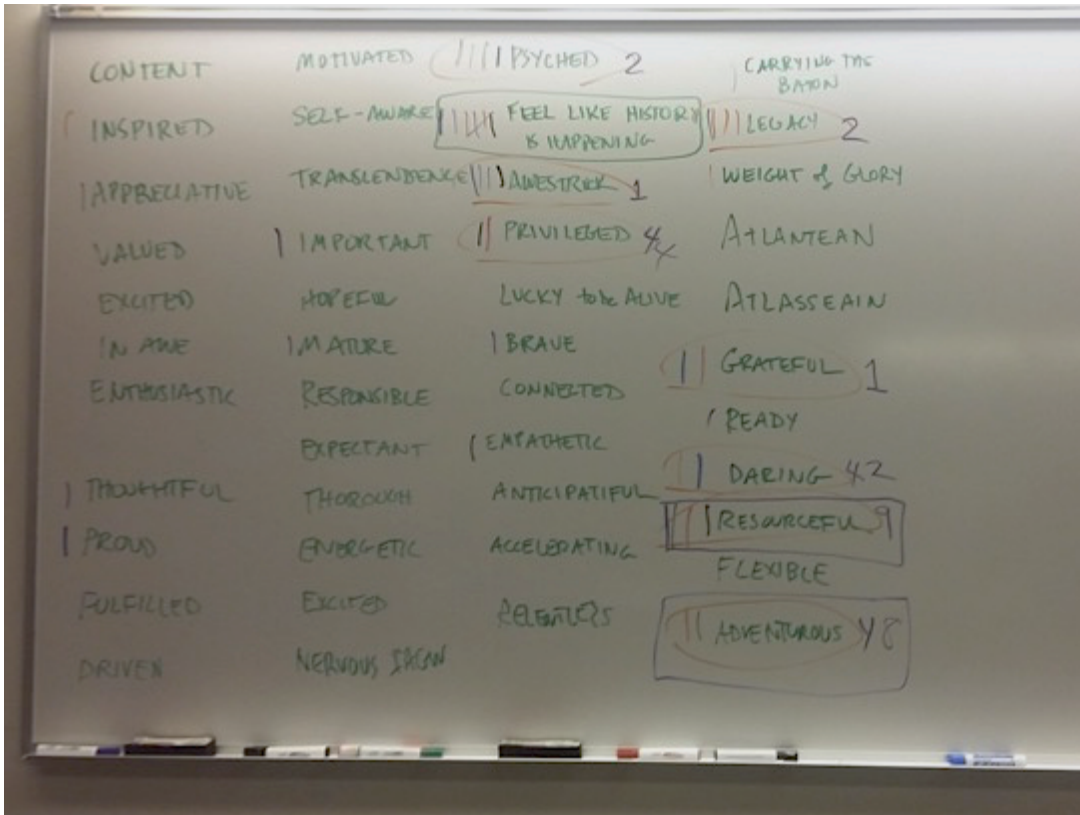 CONTENT
INSPIRED
APPRECIATIVE
VALUED
EXCITED
IN AWE
ENTHUSIASTIC
THOUGHTFUL
PROUD
FULFILLED
DRIVEN
MOTIVATED
SELF-AWARE
TRANSLENDENCE
IMPORTANT
HOPEFUL
MATURE
RESPONSIBLE
EXPECTANT
THOROUGH
ENERGETIC
EXCITED
NERVOUS
PSYCHED 2
FEEL LIKE HISTORY
IS HAPPENING
AWESTRICK 1
PRIVILEGED 4
LUCKY to be ALIVE
BRAVE
CONNECTED
EMPATHETIC
ANTICIPATIFUL
ACCELERATING
RELENTLESS
CARRYING THE
BATON
LEGACY 2
WEIGHT of GLORY
ATLANTEAN
ATLASSEAIN
GRATEFUL 1
READY
DARING 42
RESOURCEFUL 9
FLEXIBLE
ADVENTUROUS 8